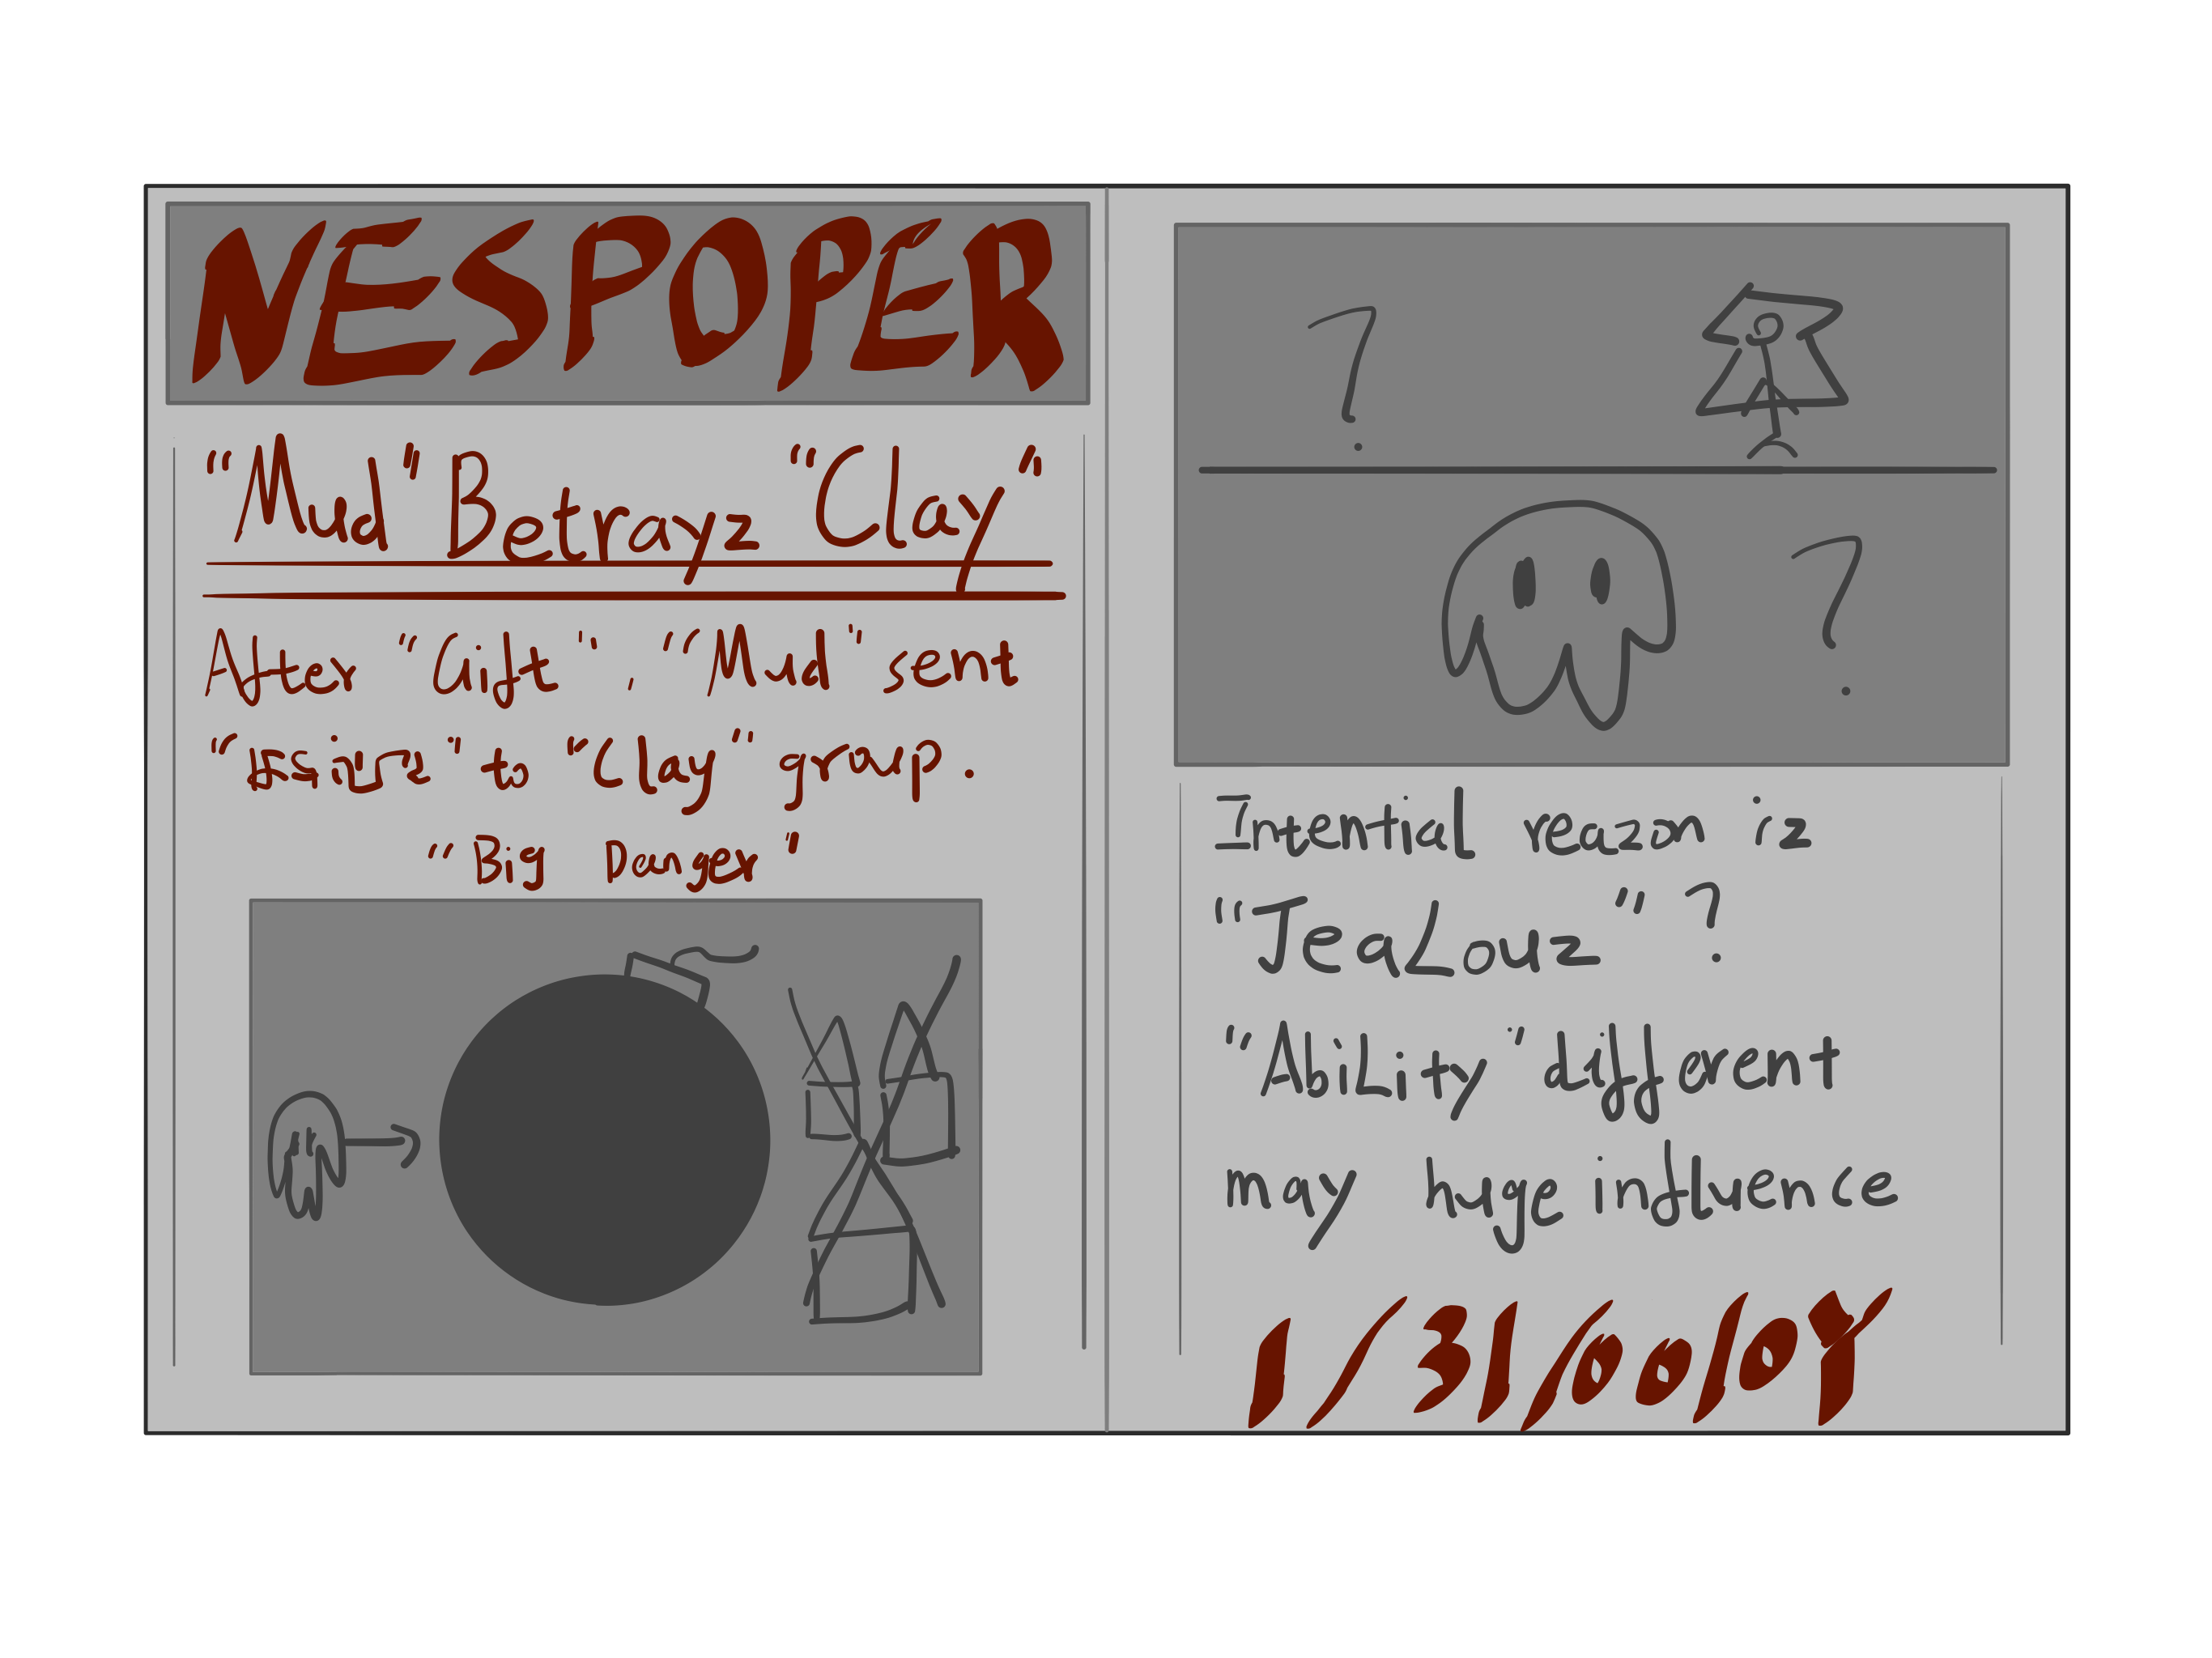 NESPOPER
"Mud" Betrayz "Clay"
After "Gift", "Mud" sent
"Assinz" to "Clay" group.
"Big Danger"
? 
?
Intential reazan iz
"Jealouz"?
"Ability" different
may huge influence
1/31/00/0Y